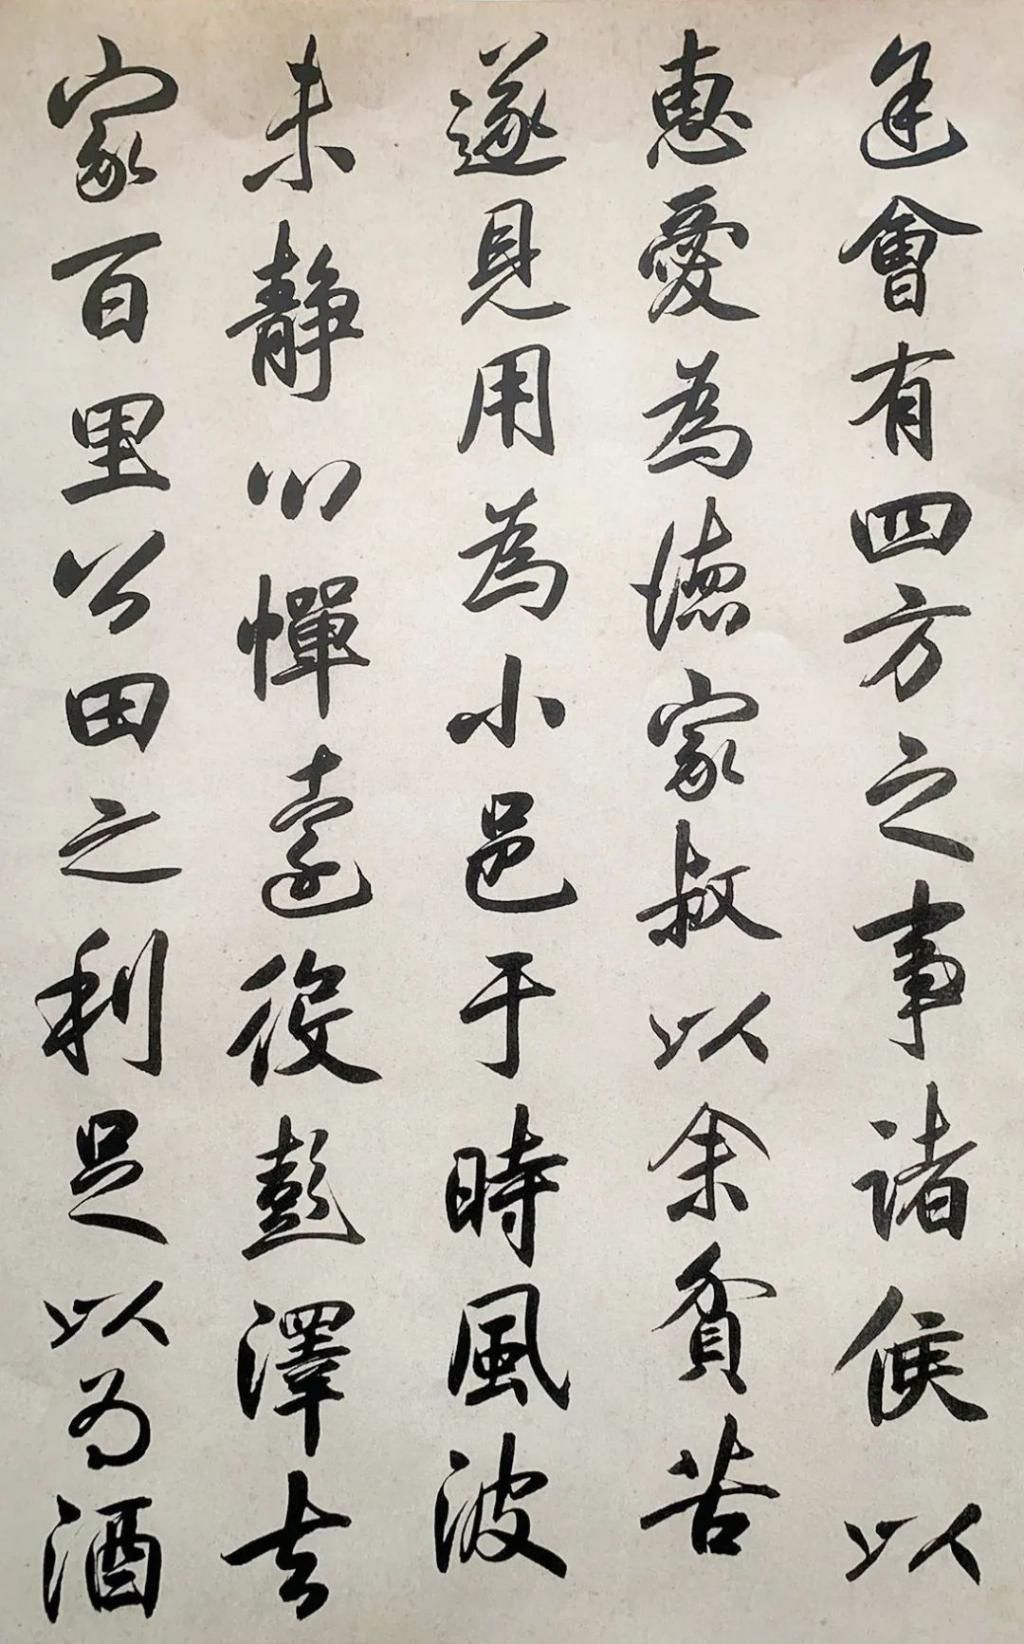 逕會有四方之事諸侯以
惠愛為德家叔以余貧苦
遂見用為小邑于時風波
未靜心憚遠役彭澤去
家百里公田之利足以為酒